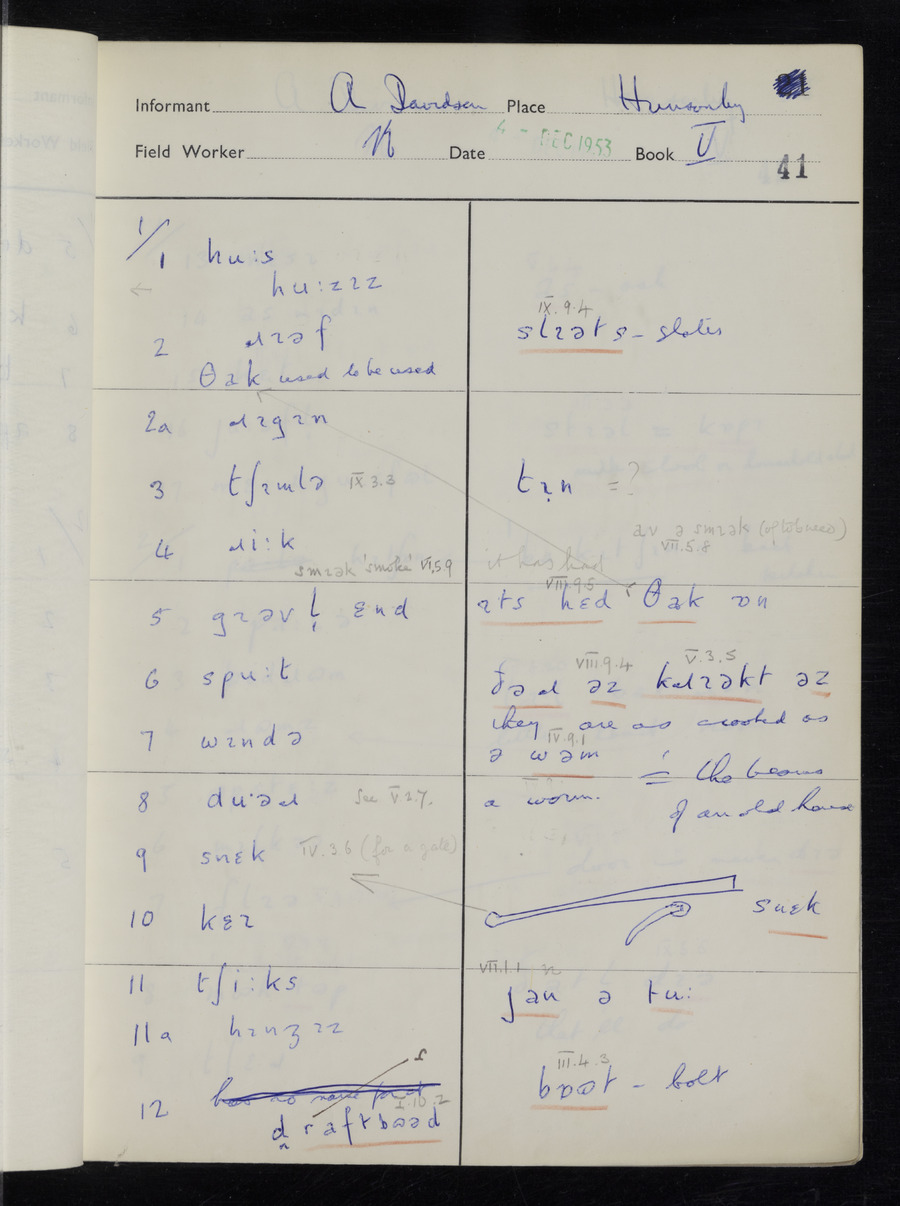 Informant A Davidson Place Hunsonby
Field Worker N Date 4 - DEC 1953 Book V
41
1/1 hu:s
hu:zɪz
←
2 ɹɪəf
θak used to be used
2a ɹɪgɪn
3 tʃɪmlə IX 3.3
4 ɹi:k
smɪək 'smoke' VI.5.9
5 gɪəvl̩ ɛnd
6 spu:t
7 wɪndə
8 du·əɹ See V.2.7.
9 snɛk IV.3.6 (for a gate)
10 kɛɪ
11 tʃi:ks
11a hɪnʒɪz
12
I.10.2
d̪raftbɔəd
IX.9.4
slɪəts - slates
= ?
av ə smɪək (of tobacco)
VII.5.8
it has had
VIII.9.5
ɪts hɛd θak ɒn
VIII.9.4 V.3.5
ðəɹ əz kɹɪəkt əz
they are as crooked as
IV.9.1
ə wəm
a worm. = the beams
of an old house
snɛk
VII.1.1
jan ə tu:
III.4.3
- bolt